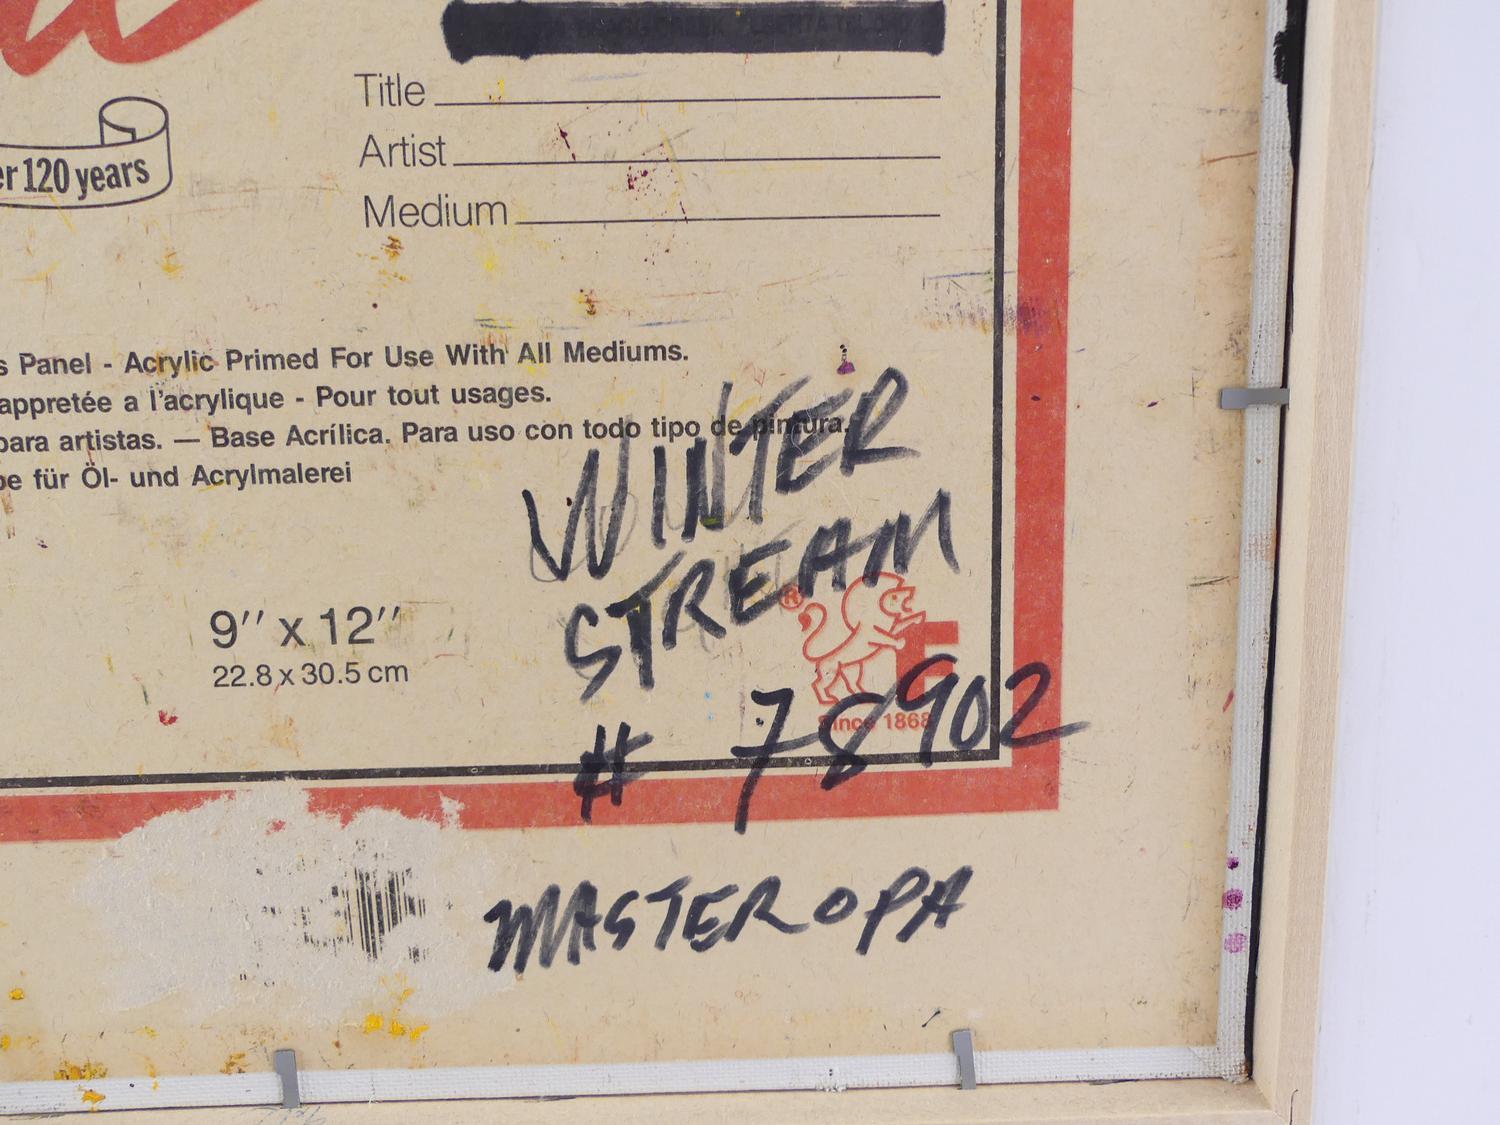 Title
Artist
Medium
er 120 years
s Panel - Acrylic Primed For Use With All Mediums.
appretée a l'acrylique - Pour tout usages.
para artistas. — Base Acrílica. Para uso con todo tipo de pintura.
pe für Öl- und Acrylmalerei
WINTER
STREAM
9" x 12"
22.8 x 30.5 cm
®
F
Since 1868
# 78902
MASTER OPA